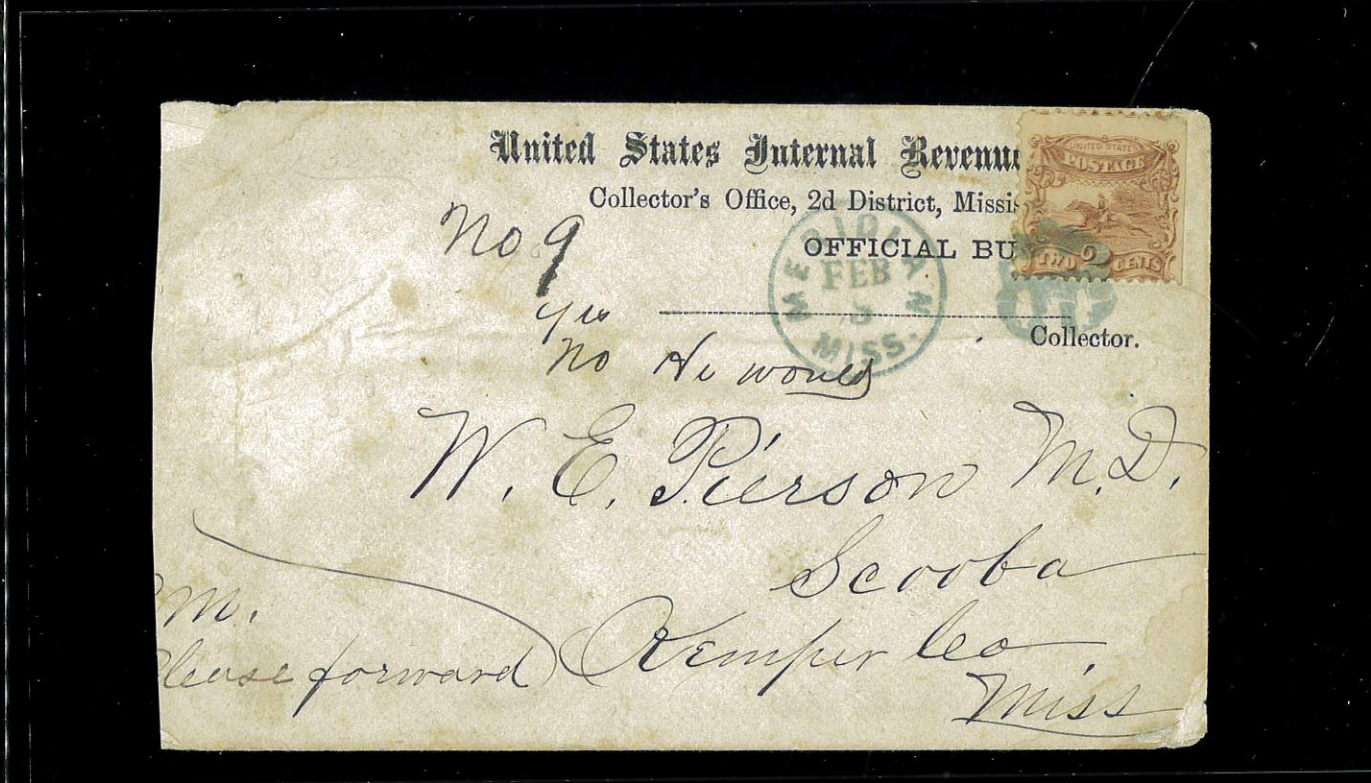 United States Internal Revenue
Collector's Office, 2d District, Missis
OFFICIAL BU
UNITED STATES
POSTAGE
TWO 2 CENTS
MERIDIAN
FEB
MISS.
No 9
Collector.
yes
No He would
W. E. Pierson M.D.
Scooba
Kemper Co.
Miss
M.
lease forward